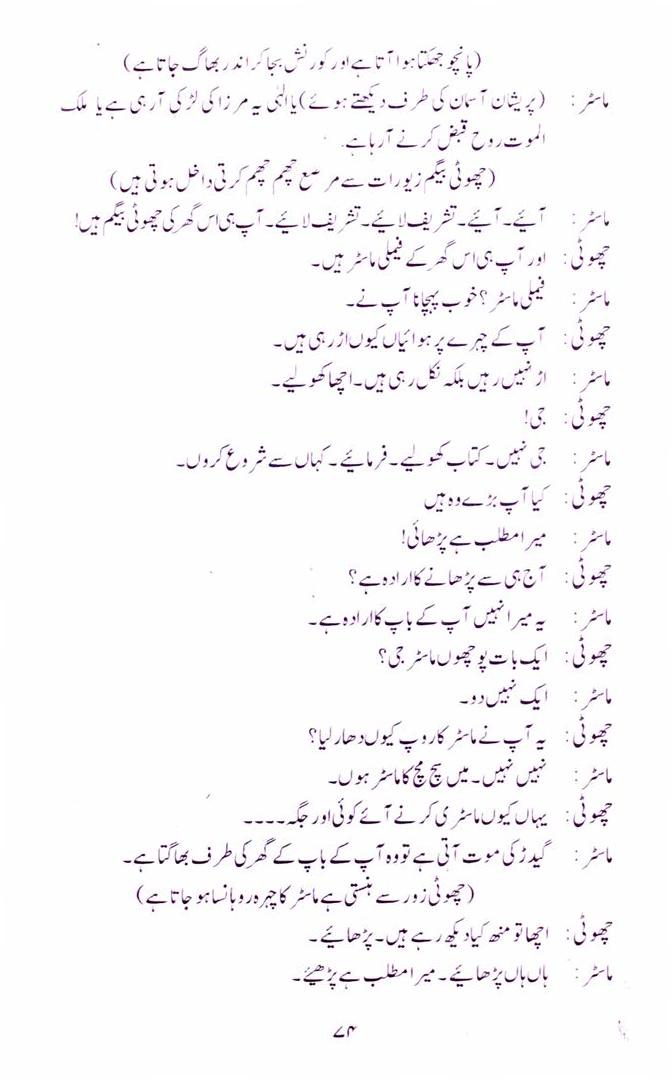 (پانچو جھکتا ہوا آتا ہے اور کورنش بجا کر اندر بھاگ جاتا ہے)
ماسٹر : (پریشان آسمان کی طرف دیکھتے ہوئے) یا الٰہی یہ مرزا کی لڑکی آ رہی ہے یا ملک
الموت روح قبض کرنے آ رہا ہے۔
(چھوٹی بیگم زیورات سے مرصع چھم چھم کرتی داخل ہوتی ہیں)
ماسٹر : آیئے۔ آیئے۔ تشریف لایئے۔ تشریف لایئے۔ آپ ہی اس گھر کی چھوٹی بیگم ہیں!
چھوٹی : اور آپ ہی اس گھر کے فیملی ماسٹر ہیں۔
ماسٹر : فیملی ماسٹر؟ خوب پہچانا آپ نے۔
چھوٹی : آپ کے چہرے پر ہوائیاں کیوں اڑ رہی ہیں۔
ماسٹر : اڑ نہیں رہیں بلکہ نکل رہی ہیں۔ اچھا کھولیے۔
چھوٹی : جی!
ماسٹر : جی نہیں۔ کتاب کھولیے۔ فرمایئے۔ کہاں سے شروع کروں۔
چھوٹی : کیا آپ بڑے وہ ہیں
ماسٹر : میرا مطلب ہے پڑھائی!
چھوٹی : آج ہی سے پڑھانے کا ارادہ ہے؟
ماسٹر : یہ میرا نہیں آپ کے باپ کا ارادہ ہے۔
چھوٹی : ایک بات پوچھوں ماسٹر جی؟
ماسٹر : ایک نہیں دو۔
چھوٹی : یہ آپ نے ماسٹر کا روپ کیوں دھار لیا؟
ماسٹر : نہیں نہیں۔ میں سچ مچ کا ماسٹر ہوں۔
چھوٹی : یہاں کیوں ماسٹری کرنے آئے کوئی اور جگہ۔۔۔۔
ماسٹر : گیدڑ کی موت آتی ہے تو وہ آپ کے باپ کے گھر کی طرف بھاگتا ہے۔
(چھوٹی زور سے ہنستی ہے ماسٹر کا چہرہ روہانسا ہو جاتا ہے)
چھوٹی : اچھا تو منھ کیا دیکھ رہے ہیں۔ پڑھایئے۔
ماسٹر : ہاں ہاں پڑھایئے۔ میرا مطلب ہے پڑھیئے۔
۷۴